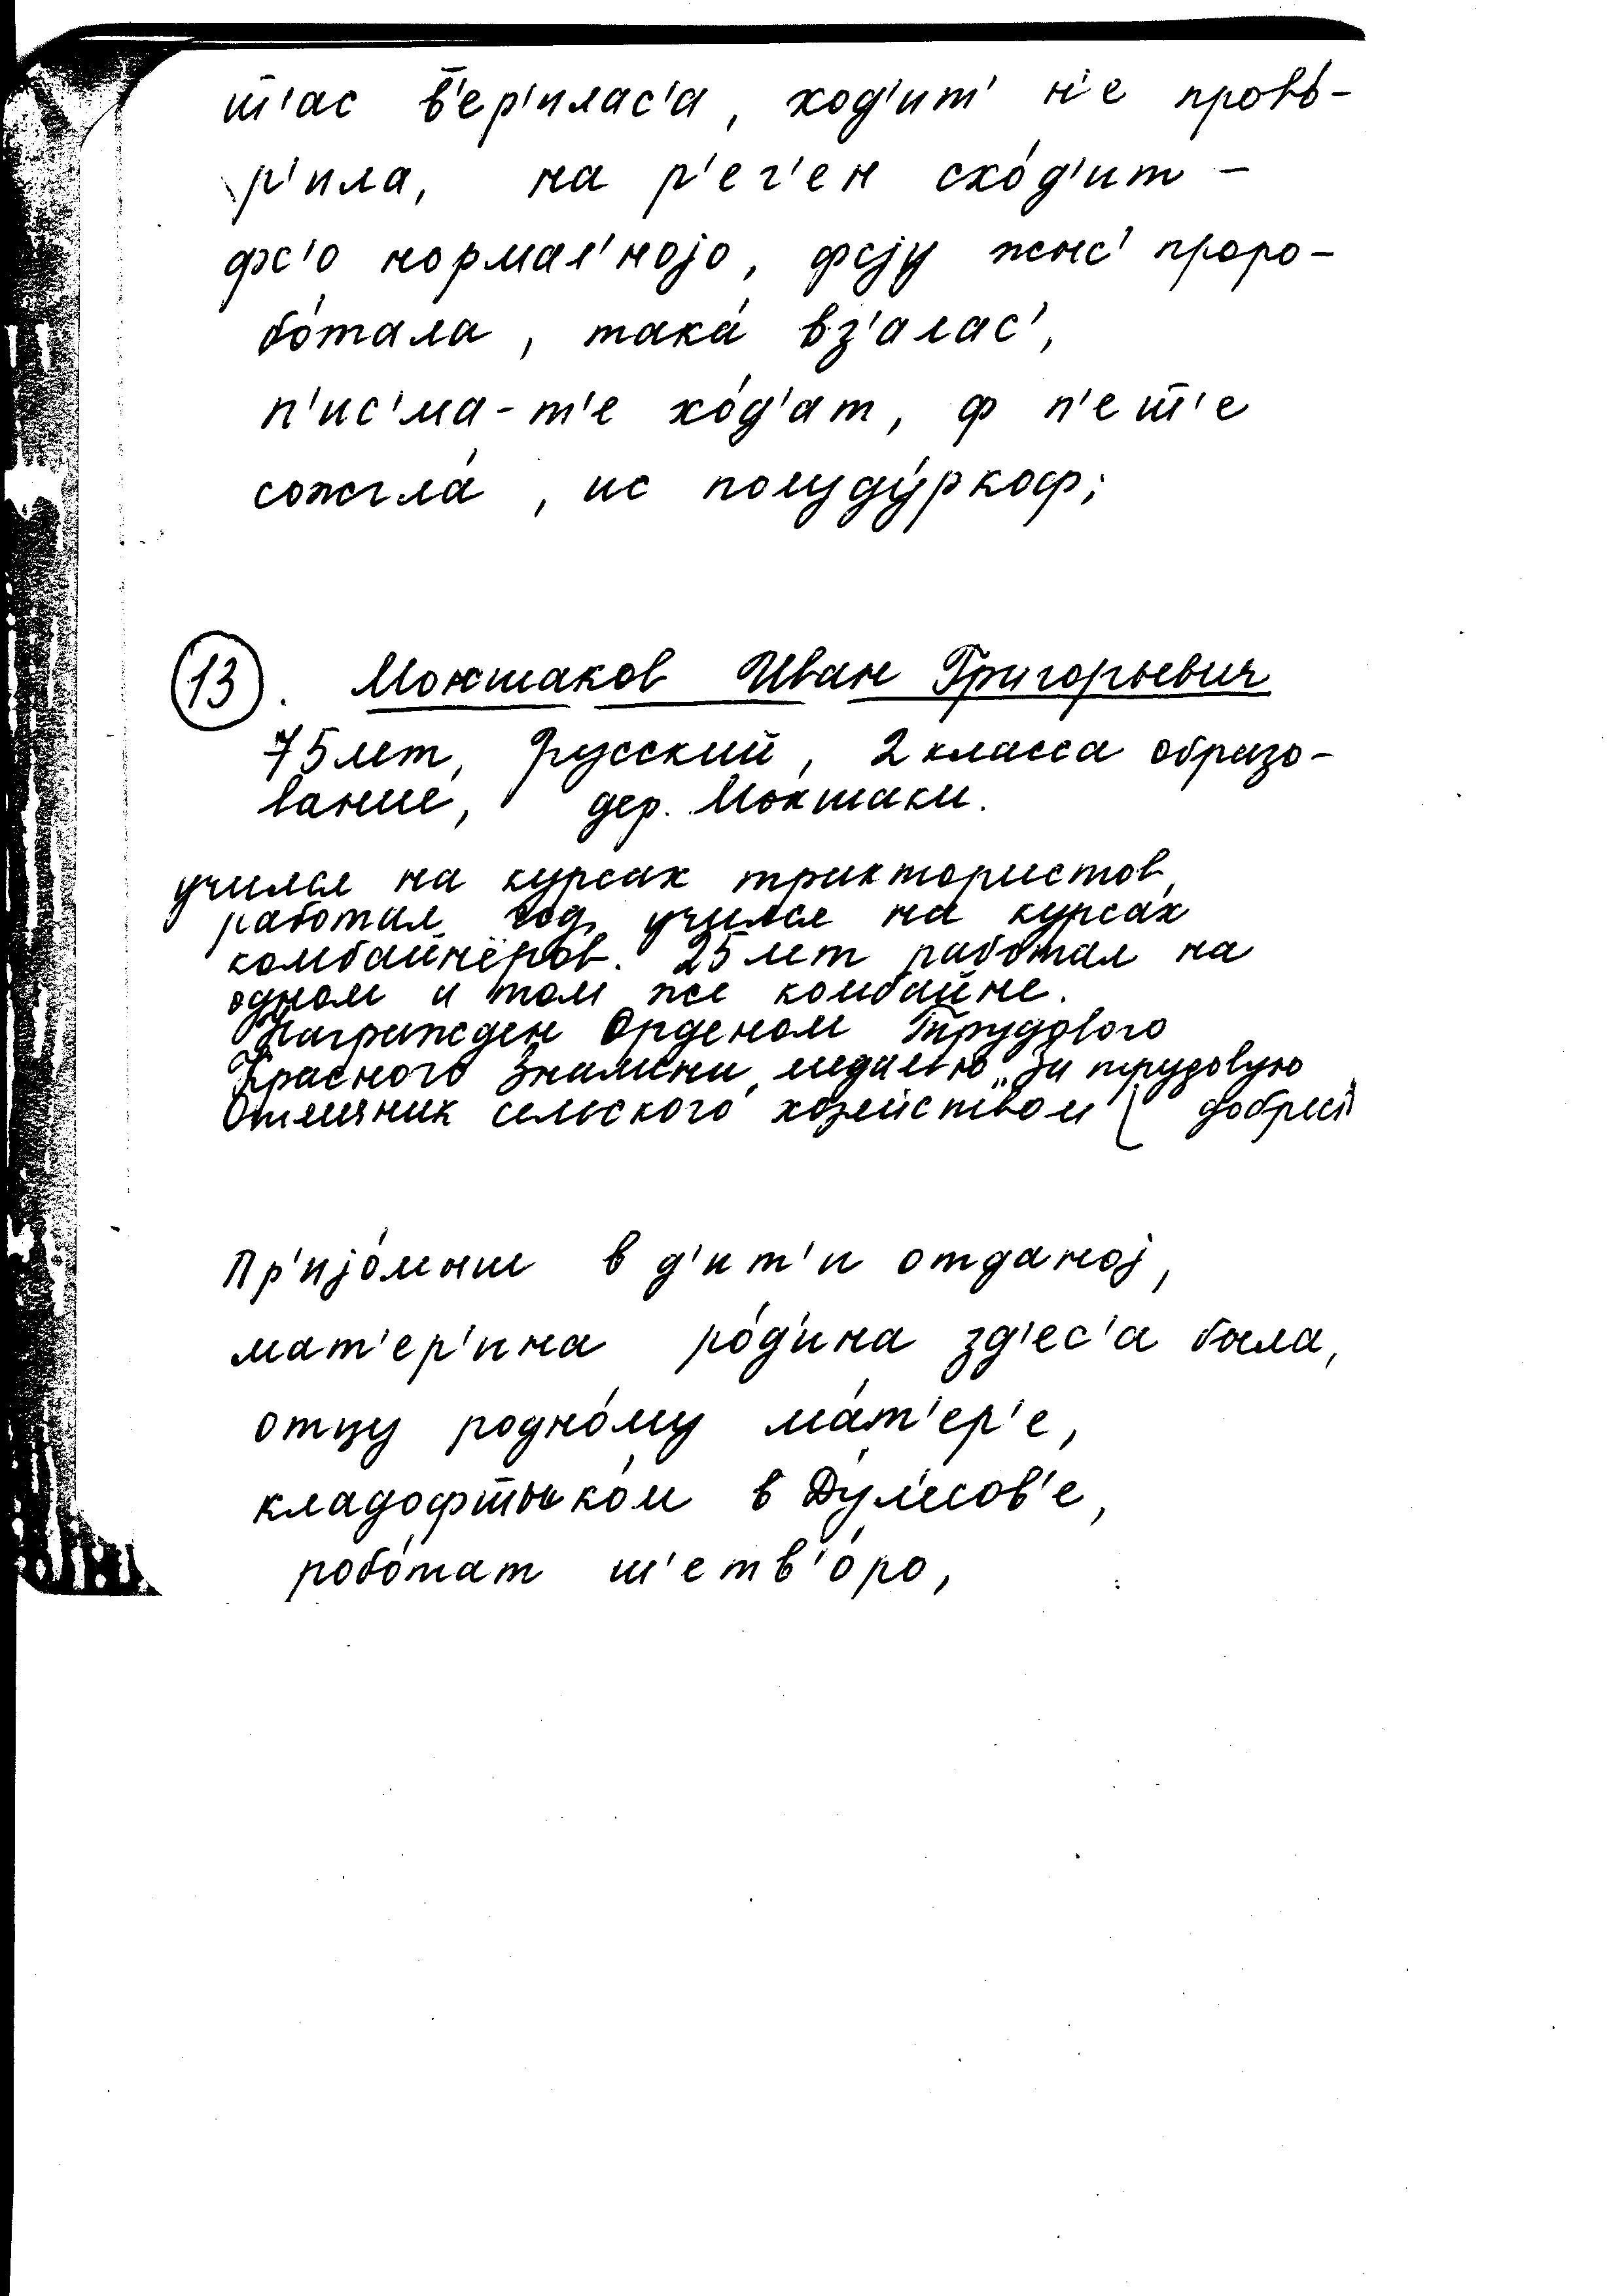 ш̅'ас в'ер'илас'а, ход'ит' н'е провъ-
р'ила, на р'ег'ен схо́д'ит –
фс'о нормал'нојо, фсју жыс' проро-
бо́тала, така́ вз'алас',
п'ис'ма-т'е хо́д'ат, ф п'еш̅'е
сожгла́, ис полуду́ркоф;
13. Мокшаков Иван Григорьевич
75 лет, русский, 2 класса образо-
вание, дер. Мокшаки.
учился на курсах трактористов,
работал год, учился на курсах
комбайнёров. 25 лет работал на
одном и том же комбайне.
Награжден Орденом Трудового
Красного Знамени, медалью „За трудовую
Отличник сельского хозяйством ( доблесть
Пр'ијо́мыш в д'ит'и отданој,
мат'ер'ина ро́д'ина зд'ес'а была,
отцу родно́му ма́т'ер'е,
кладофш̅ыко́м в
робо́тат ш'етв'о́ро,